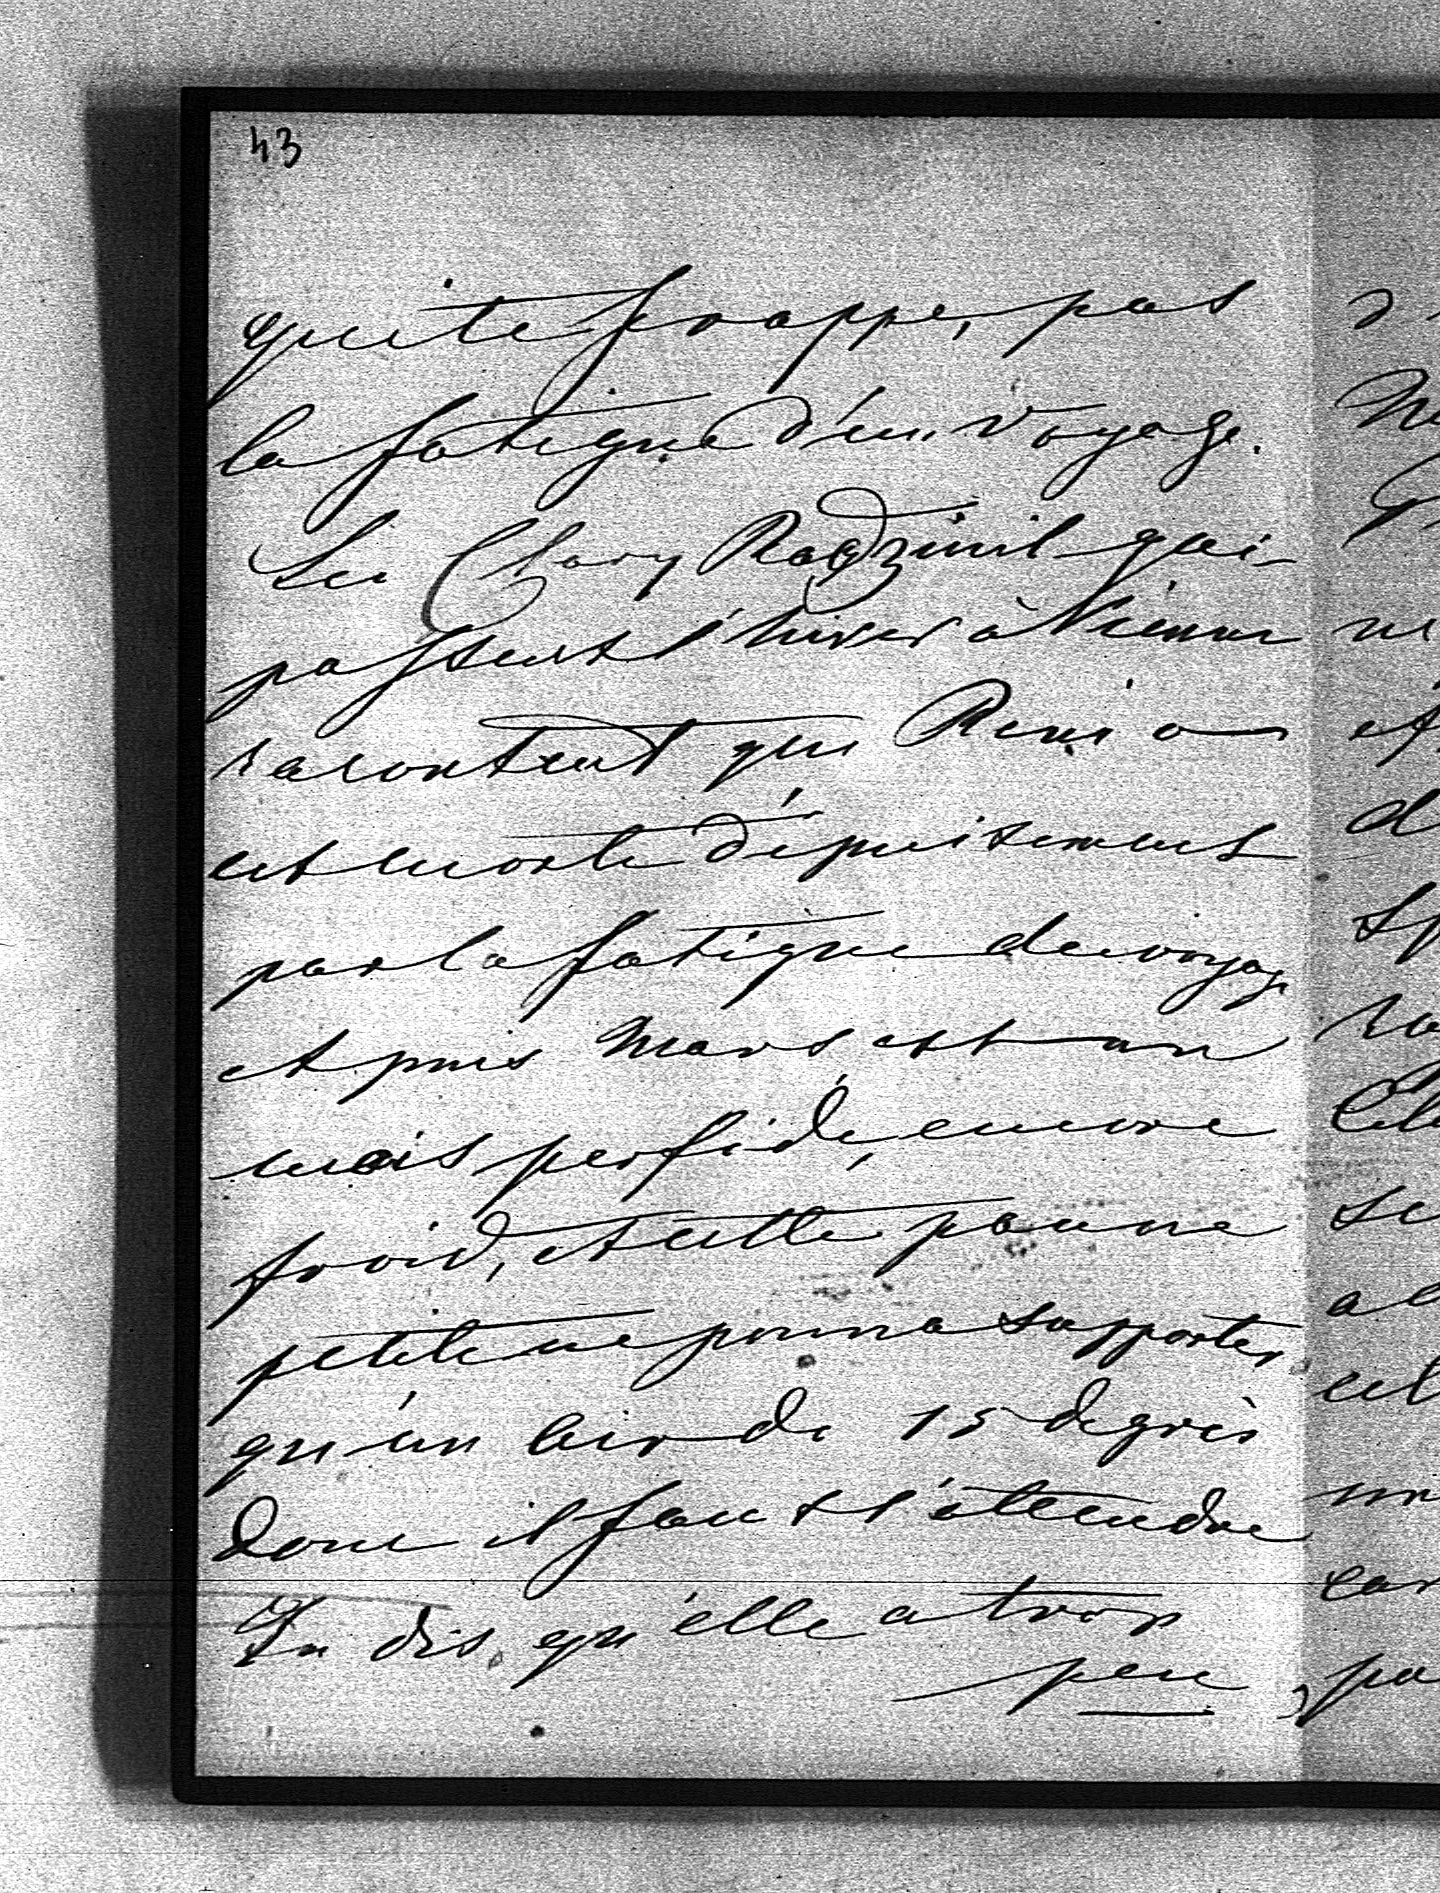 43
qui te frappe, pas
la fatigue d'un voyage.
Les Clary Radziwil qui
passent l'hiver à Vienne
racontent que Reni
est morte d'épuisement
par la fatigue du voyage
et puis Mars est un
mois perfide, encore
froid, et cette pauvre
petite ne pourra supporter
qu'un air de 15 degrès
donc il faut s'attendre
Tu dis qu'elle a trop
peu